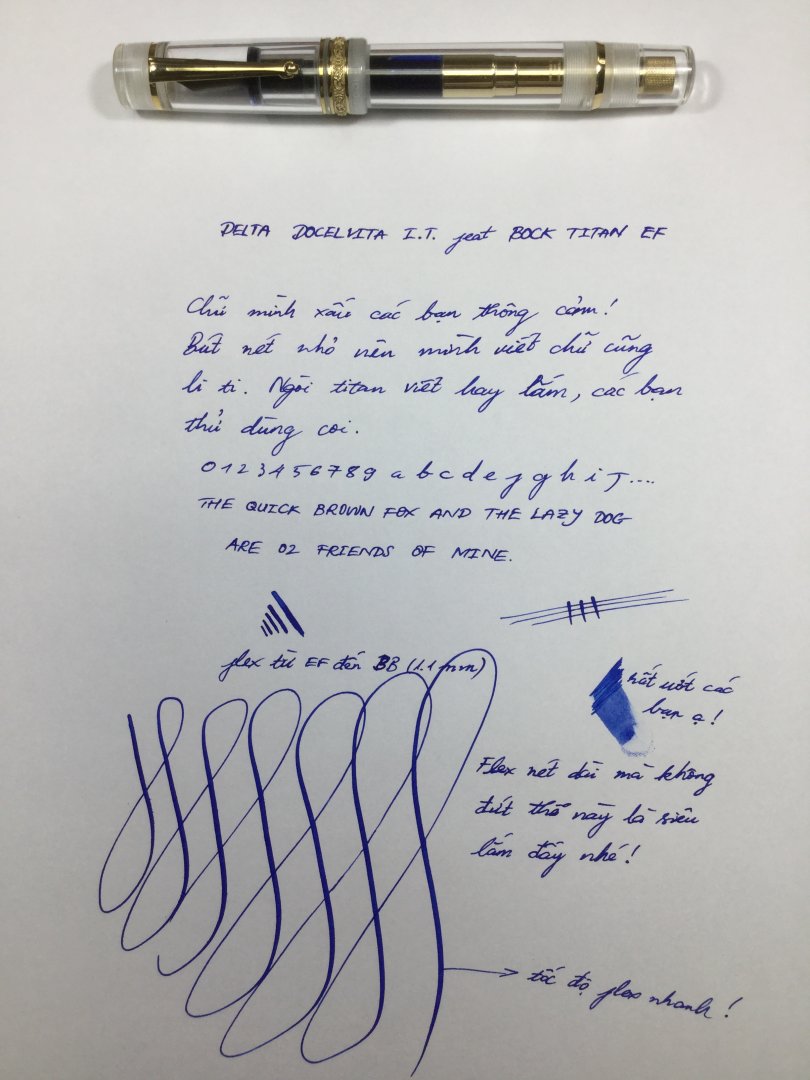 DELTA DOCELVITA I.T. feat BOCK TITAN EF
Chữ mình xấu các bạn thông cảm!
Bút nét nhỏ nên mình viết chữ cũng
li ti. Ngòi titan viết hay lắm, các bạn
thử dùng coi.
0 1 2 3 4 5 6 7 8 9 a b c d e f g h i J....
THE QUICK BROWN FOX AND THE LAZY DOG
ARE 02 FRIENDS OF MINE.
flex từ EF đến BB (1.1 mm)
rất ướt các
bạn ạ!
Flex nét dài mà không
đứt thế này là siêu
lắm đấy nhé!
tốc độ flex nhanh!